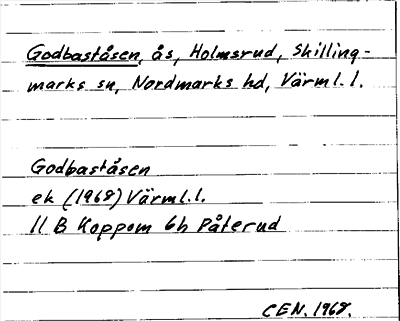 Godbaståsen, ås, Holmsrud, Skilling-
marks sn, Nordmarks hd, Värml.l.
Godbaståsen
ek (1968) Värml.l.
11 B Koppom 6h Påterud
CEN. 1968.